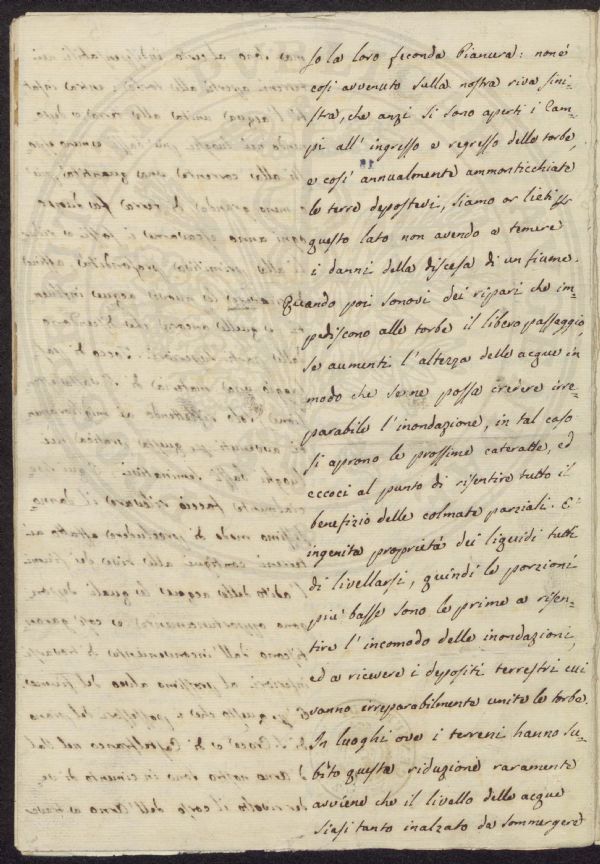 so la loro feconda Pianura: non è
così avvenuto sulla nostra riva sini-
stra, che anzi si sono aperti i Cam-
pi all' ingresso e regresso delle torbe,
e così annualmente ammonticchiate
le terre depostevi, siamo or lieti se
questo lato non avendo a temere
i danni della discesa di un fiume.
Quando poi sonovi dei ripari che im-
pediscono alle torbe il libero passaggio,
se aumenti l' altezza delle acque in
modo che se ne possa credere irre-
parabile l' inondazione, in tal caso
si aprono le prossime cateratte, ed
eccoci al punto di risentire tutto il
benefizio delle colmate parziali. E'
ingenita proprietà dei liquidi tutti
di livellarsi, quindi le porzioni
più basse sono le prime a risen-
tire l' incomodo delle inondazioni,
ed a ricevere i depositi terrestri cui
vanno irreparabilmente unite le torbe.
In luoghi ove i terreni hanno su-
bito questa riduzione raramente
avviene che il livello delle acque
siasi tanto inalzato da sommergere